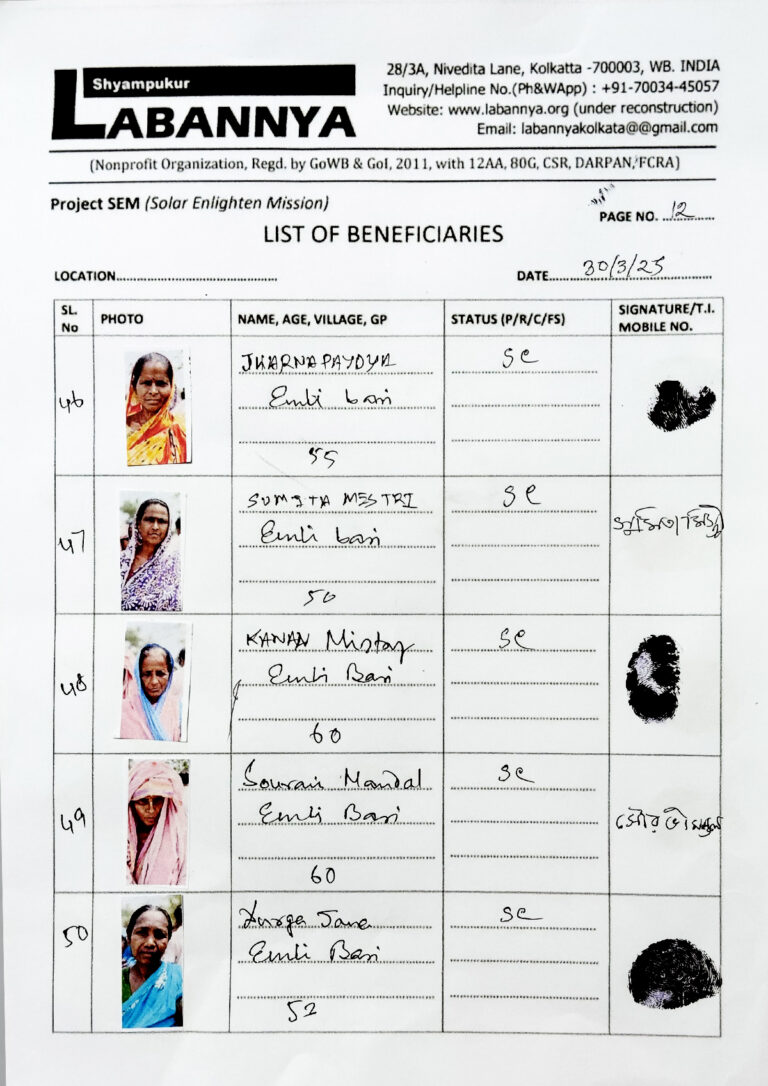 Shyampukur
LABANNYA
28/3A, Nivedita Lane, Kolkatta -700003, WB. INDIA
Inquiry/Helpline No.(Ph&WApp) : +91-70034-45057
Website: www.labannya.org (under reconstruction)
Email: labannyakolkata@@gmail.com
(Nonprofit Organization, Regd. by GoWB & GoI, 2011, with 12AA, 80G, CSR, DARPAN, FCRA)
Project SEM (Solar Enlighten Mission)
PAGE NO. 12
LIST OF BENEFICIARIES
LOCATION
DATE 30/3/25
SL. No PHOTO NAME, AGE, VILLAGE, GP STATUS (P/R/C/FS) SIGNATURE/T.I. MOBILE NO.
46 JHARNA SC
Emli bari
55
47 SUMITA MESTRI SC
Emli bari
50
48 KANAN Mistry SC
Emli Bari
60
49 Mandal SC
Emli Bari
60
50 Durga Jana SC
Emli Bari
52